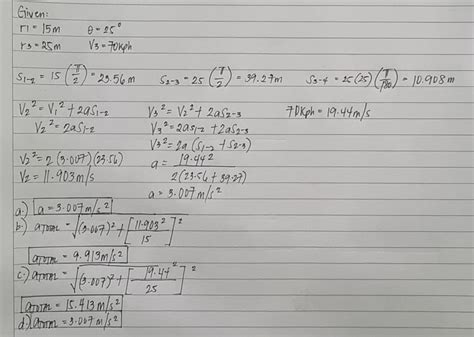 Given:
r1 = 15m θ = 25°
r3 = 25m V3 = 70kph
S1-2 = 15 (π/2) = 23.56 m S2-3 = 25 (π/2) = 39.27 m S3-4 = 25 (25) (π/180) = 10.908 m
V2² = V1² + 2aS1-2 V3² = V2² + 2aS2-3 70kph = 19.44 m/s
V2² = 2aS1-2 V3² = 2aS1-2 + 2aS2-3
V3² = 2a (S1-2 + S2-3)
V2² = 2 (3.007) (23.56) a = 19.44² / 2(23.56 + 39.27)
V2 = 11.903 m/s a = 3.007 m/s²
a.) a = 3.007 m/s²
b.) aTOTAL = √(3.007)² + [11.903² / 15]²
aTOTAL = 9.913 m/s²
c.) aTOTAL = √(3.007)² + [19.44² / 25]²
aTOTAL = 15.413 m/s²
d.) aTOTAL = 3.007 m/s²